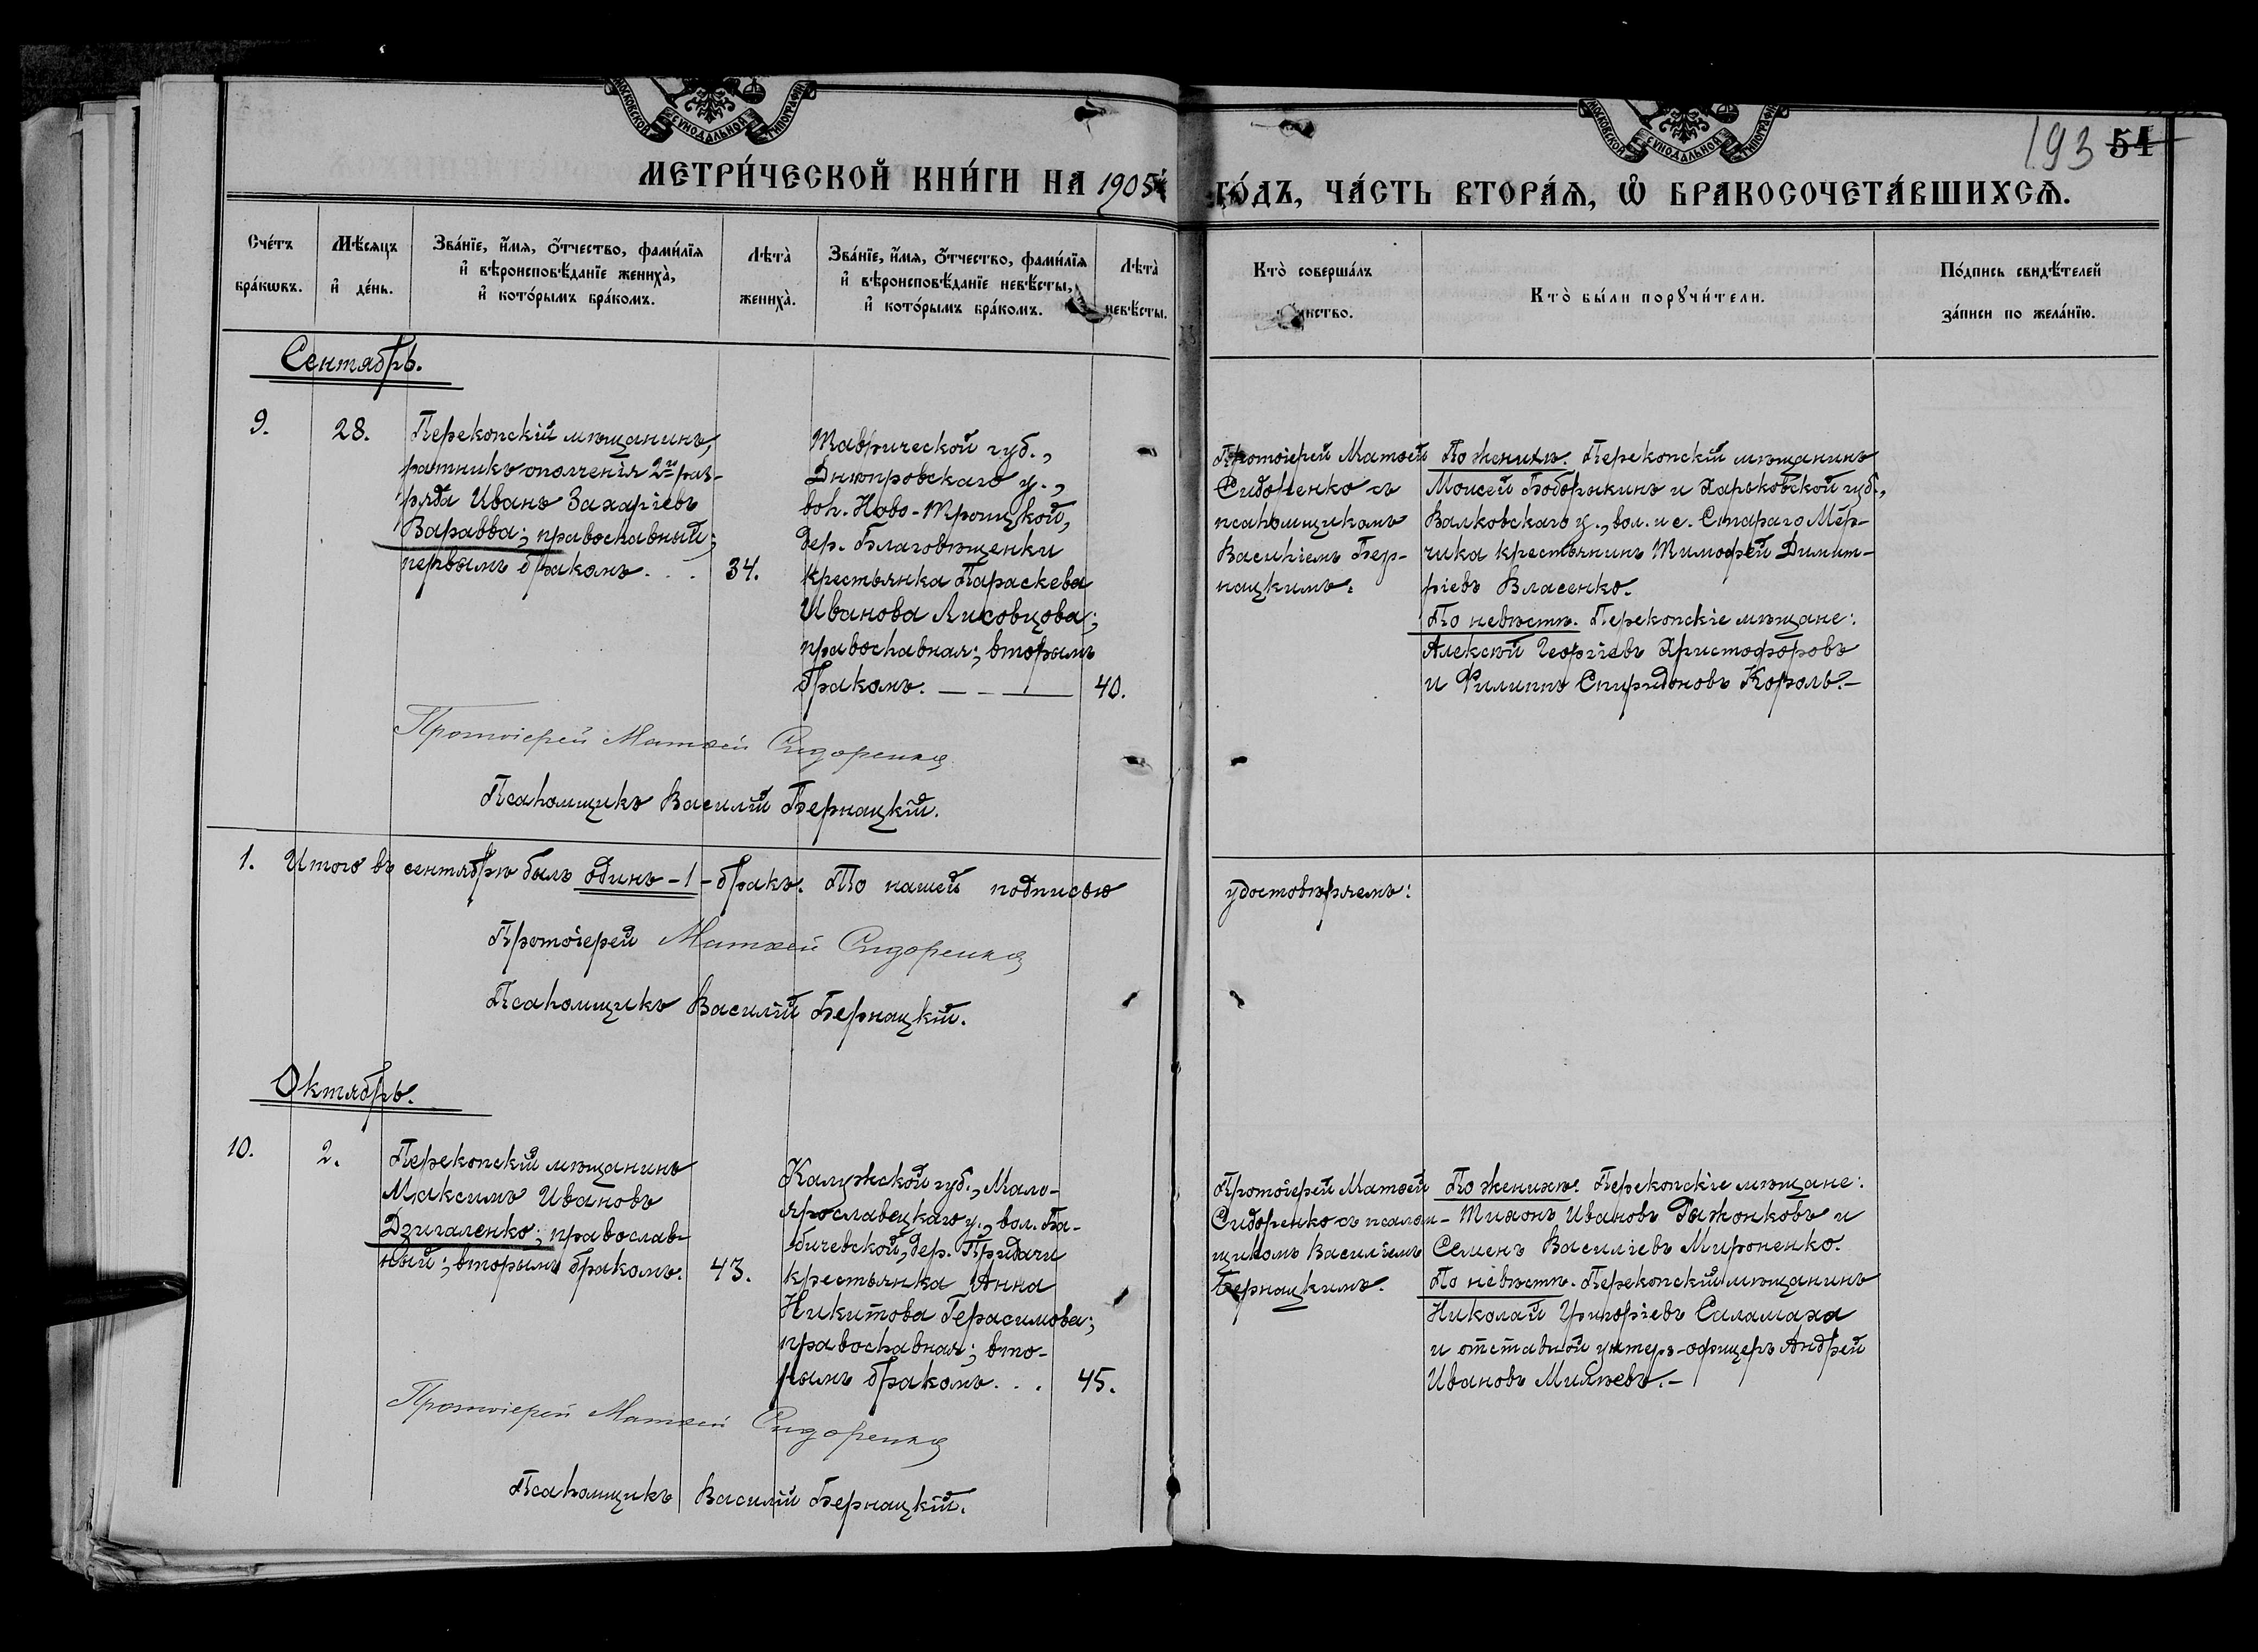 МОСКОВСКОЙ СУНОДАЛЬНОЙ ТИПОГРАФІИ
МОСКОВСКОЙ СУНОДАЛЬНОЙ ТИПОГРАФІИ
193 54
МЕТРИ́ЧЕСКОЙ КНИ́ГИ НА 1905й ГО́ДЪ, ЧА́СТЬ ВТОРА́Ѧ, Ѡ҆ БРАКОСОЧЕТА́ВШИХСѦ.
Сче́тъ
бра́кѡвъ.
Мѣ́сяцъ
и҆ де́нь.
Зва́нїе, и҆́мя, ѻ҆́тчество, фами́лїя
и҆ вѣроисповѣ́данїе жениха̀,
и҆ кото́рымъ бра́комъ.
Лѣта̀
жениха̀.
Зва́нїе, и҆́мя, ѻ҆́тчество, фами́лїя
и҆ вѣроисповѣ́данїе невѣ́сты,
и҆ кото́рымъ бра́комъ.
Лѣта̀
невѣ́сты.
Кто̀ соверша́лъ
Кто̀ бы́ли порꙋчи́тели.
По́дпись свидѣ́телей
за́писи по жела́нїю.
Сентябрь.
9.
28.
Перекопскій мѣщанинъ,
ратникъ ополченія 2го раз-
ряда Иванъ Захаріевъ
Варавва; православный;
первымъ бракомъ . . .
34.
Таврической губ.,
Днѣпровскаго у.,
вол. Ново-Троицкой,
дер. Благовѣщенки
крестьянка Параскева
Иванова Лисовцова;
православная; вторымъ
бракомъ. — - —
40.
Протоіерей Матѳей
Сидоренко съ
псаломщикомъ
Василіемъ Бер-
нацкимъ.
По женихѣ. Перекопскій мѣщанинъ
Моисей Боборыкинъ и Харьковской губ.,
Валковскаго у., вол. и с. Стараго Мер-
чика крестьянинъ Тимофей Димит-
ріевъ Власенко.
По невѣстѣ. Перекопскіе мѣщане:
Алексѣй Георгіевъ Христофоровъ
и Филиппъ Спиридоновъ Король.—
Протоіерей Матѳей Сидоренко
Псаломщикъ Василій Бернацкій.
1. Итого въ сентябрѣ былъ одинъ -1- бракъ. То нашей подписью удостовѣряемъ:
Протоіерей Матѳей Сидоренко
Псаломщикъ Василій Бернацкій.
Октябрь.
10.
2.
Перекопскій мѣщанинъ
Максимъ Ивановъ
Дзигаленко; православ-
ный; вторымъ бракомъ.
43.
Калужской губ., Мало-
ярославецкаго у., вол. Ба-
бичевской, дер. Придачи
крестьянка Анна
Никитова Герасимова;
православная; вто-
рымъ бракомъ . . .
45.
Протоіерей Матѳей
Сидоренко съ псалом-
щикомъ Василіемъ
Бернацкимъ.
По женихѣ. Перекопскіе мѣщане:
Тихонъ Ивановъ и
Семенъ Василіевъ Мироненко.
По невѣстѣ. Перекопскій мѣщанинъ
Николай Григоріевъ Саламаха
и отставной унтеръ-офицеръ Андрей
Ивановъ
Протоіерей Матѳей Сидоренко
Псаломщикъ Василій Бернацкій.